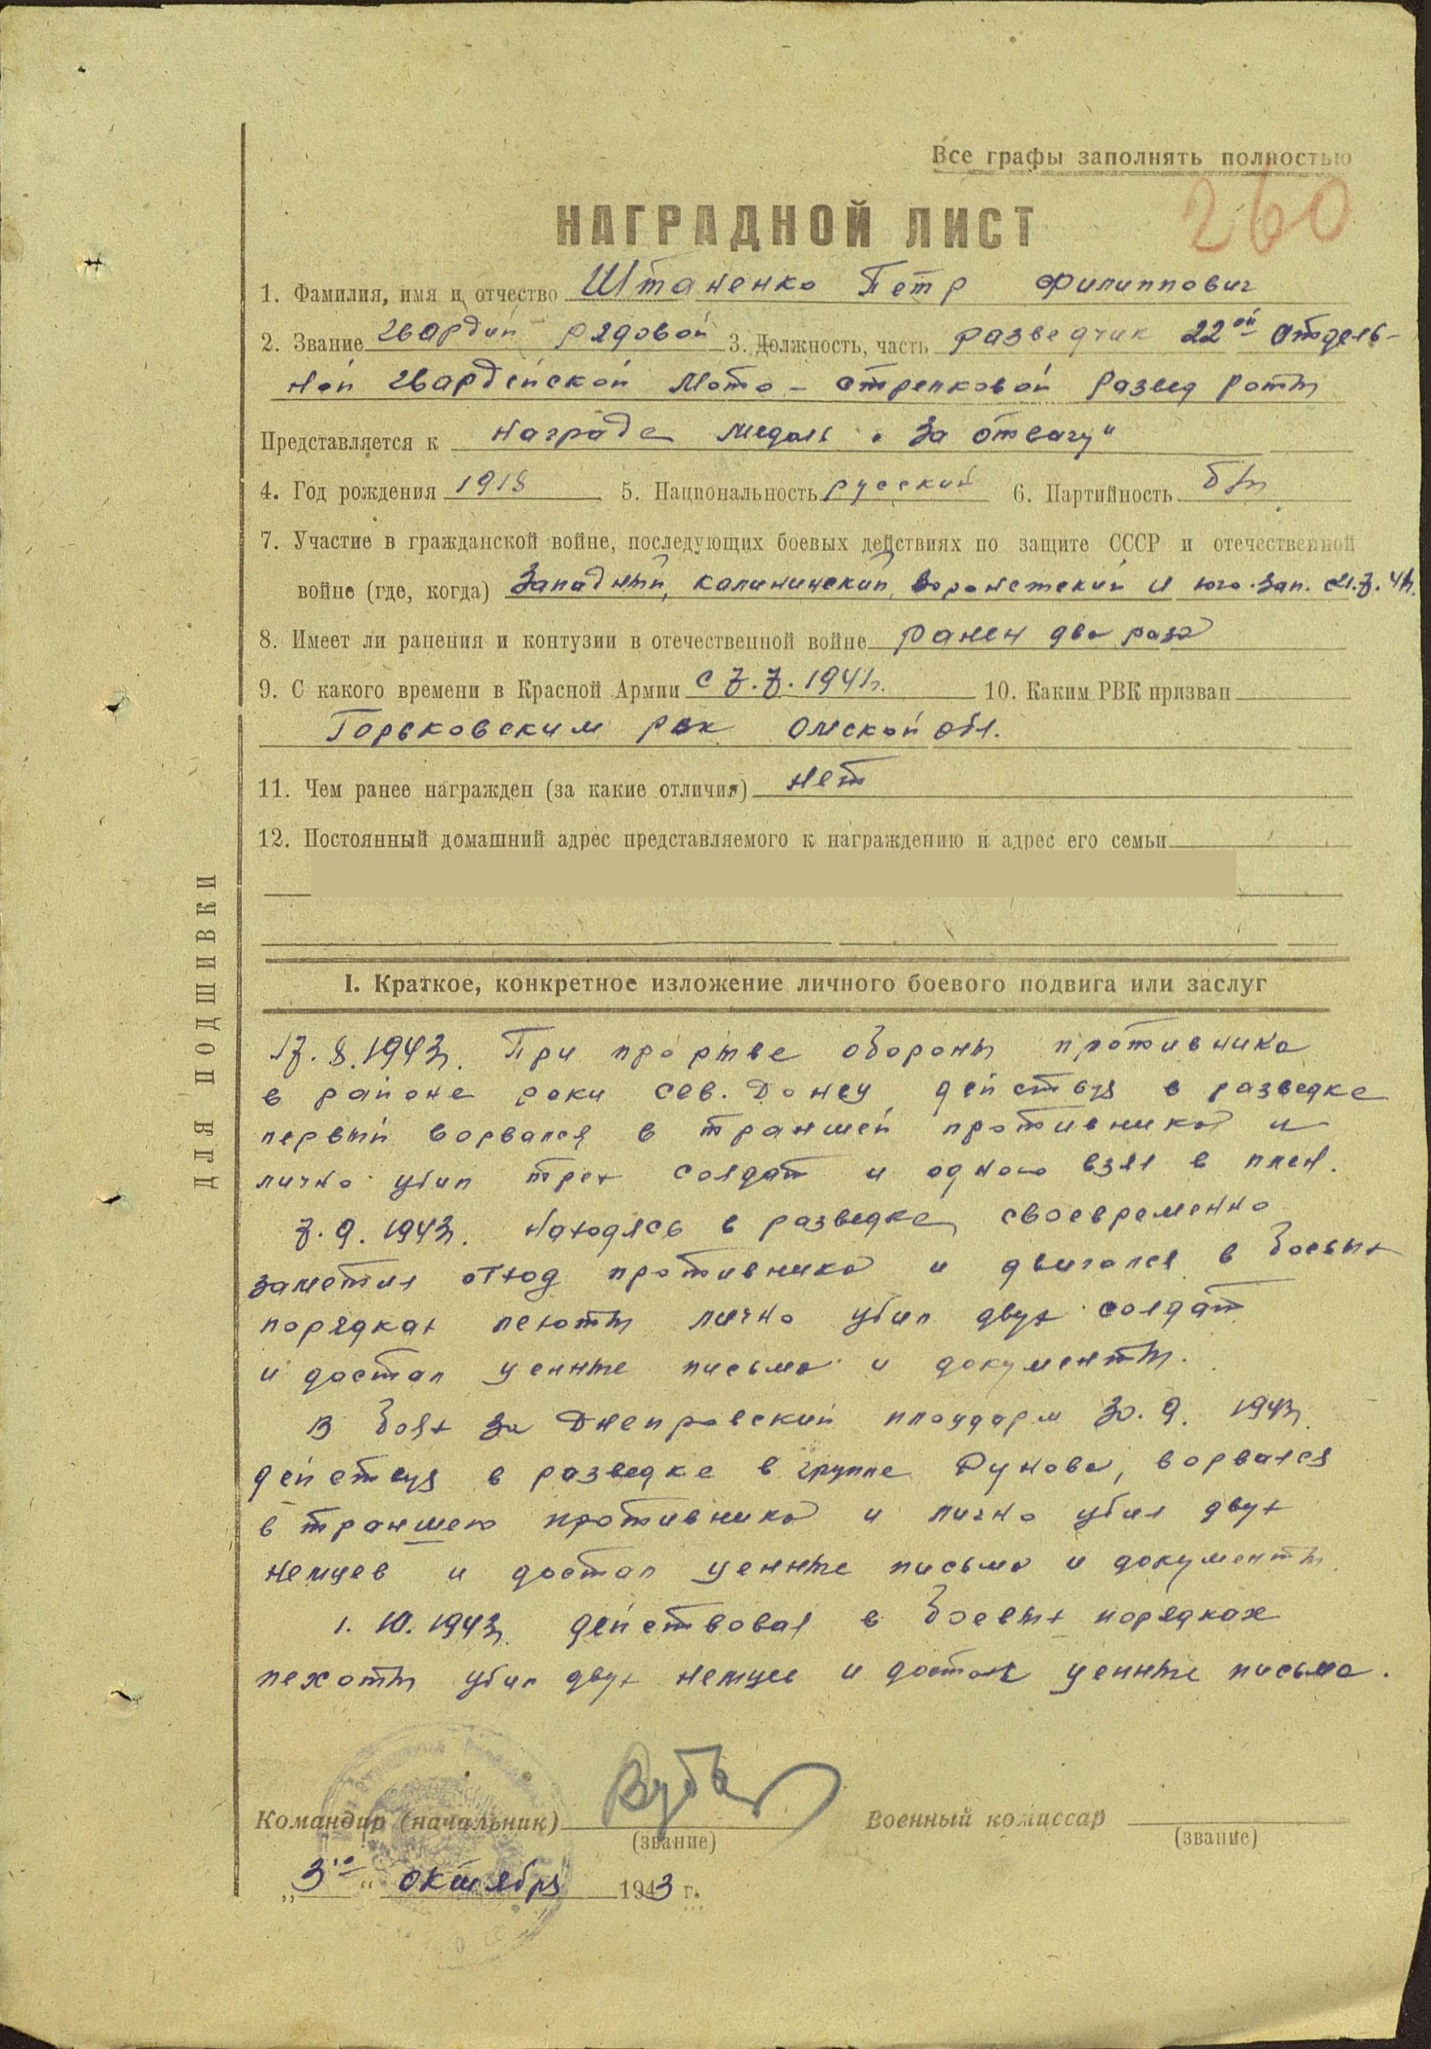 Все графы заполнять полностью
260
НАГРАДНОЙ ЛИСТ
1. Фамилия, имя и отчество Штаненко Петр Филиппович
2. Звание Гвардии рядовой 3. Должность, часть разведчик 22ой отдель-
ной Гвардейской Мото-стрелковой развед роты
Представляется к награде медаль „За отвагу"
4. Год рождения 1918 5. Национальность русский 6. Партийность б/п
7. Участие в гражданской войне, последующих боевых действиях по защите СССР и отечественной
войне (где, когда) Западный, Калининский, Воронежский и юго-зап. с 7.41г.
8. Имеет ли ранения и контузии в отечественной войне ранен два раза
9. С какого времени в Красной Армии с 7.7.1941г. 10. Каким РВК призван
Горьковским рвк Омской обл.
11. Чем ранее награжден (за какие отличия) нет
12. Постоянный домашний адрес представляемого к награждению и адрес его семьи
ДЛЯ ПОДШИВКИ
I. Краткое, конкретное изложение личного боевого подвига или заслуг
17.8.1943г. При прорыве обороны противника
в районе реки Сев. Донец, действуя в разведке
первый ворвался в траншей противника и
лично убил трех солдат и одного взял в плен.
7.9.1943г. находясь в разведке, своевременно
заметил отход противника и двигался в боевых
порядках пехоты лично убил двух солдат
и достал ценные письма и документы.
В боях за Днепровский плацдарм 30.9.1943г.
действуя в разведке в группе Рунова, ворвался
в траншею противника и лично убил двух
немцев и достал ценные письма и документы
1.10.1943г. действовал в боевых порядках
пехоты убил двух немцев и достал ценные письма.
Командир (начальник)
(звание)
Военный комиссар
(звание)
„3го" октября 1943 г.